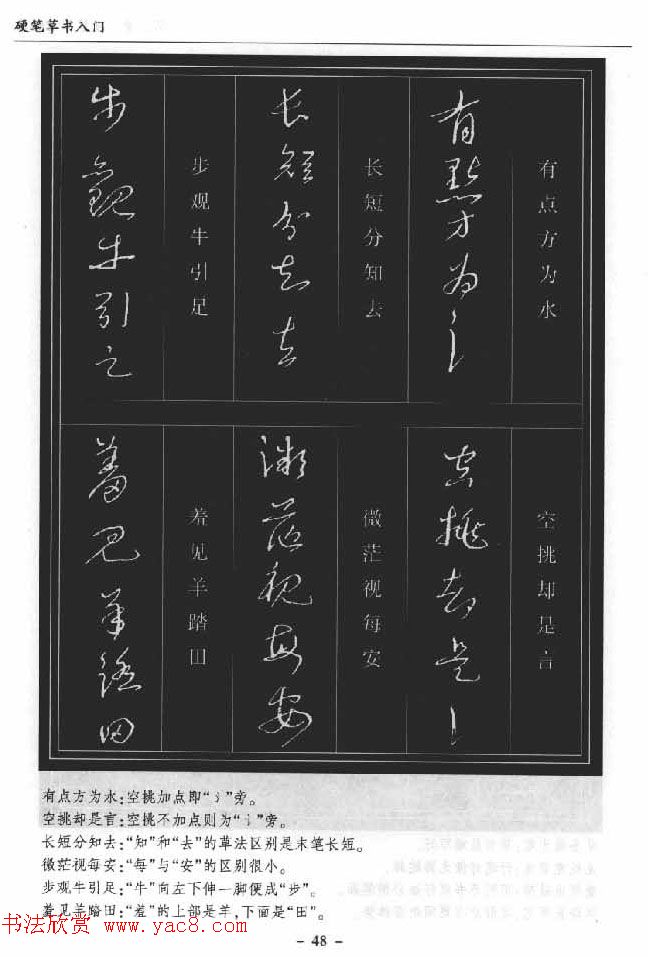 硬笔草书入门
有点方为水
有點方为氵
长短分知去
长短分知去
步观牛引足
步觀牛引足
空挑却是言
空挑却是讠
微茫视每安
微茫視每安
羞见羊踏田
羞见羊踏田
有点方为水:空挑加点即“氵”旁。
空挑却是言:空挑不加点则为“讠”旁。
长短分知去:“知”和“去”的草法区别是末笔长短。
微茫视每安:“每”与“安”的区别很小。
步观牛引足:“牛”向左下伸一脚便成“步”。
羞见羊踏田:“羞”的上部是羊,下面是“田”。
书法欣赏 www.yac8.com
- 48 -